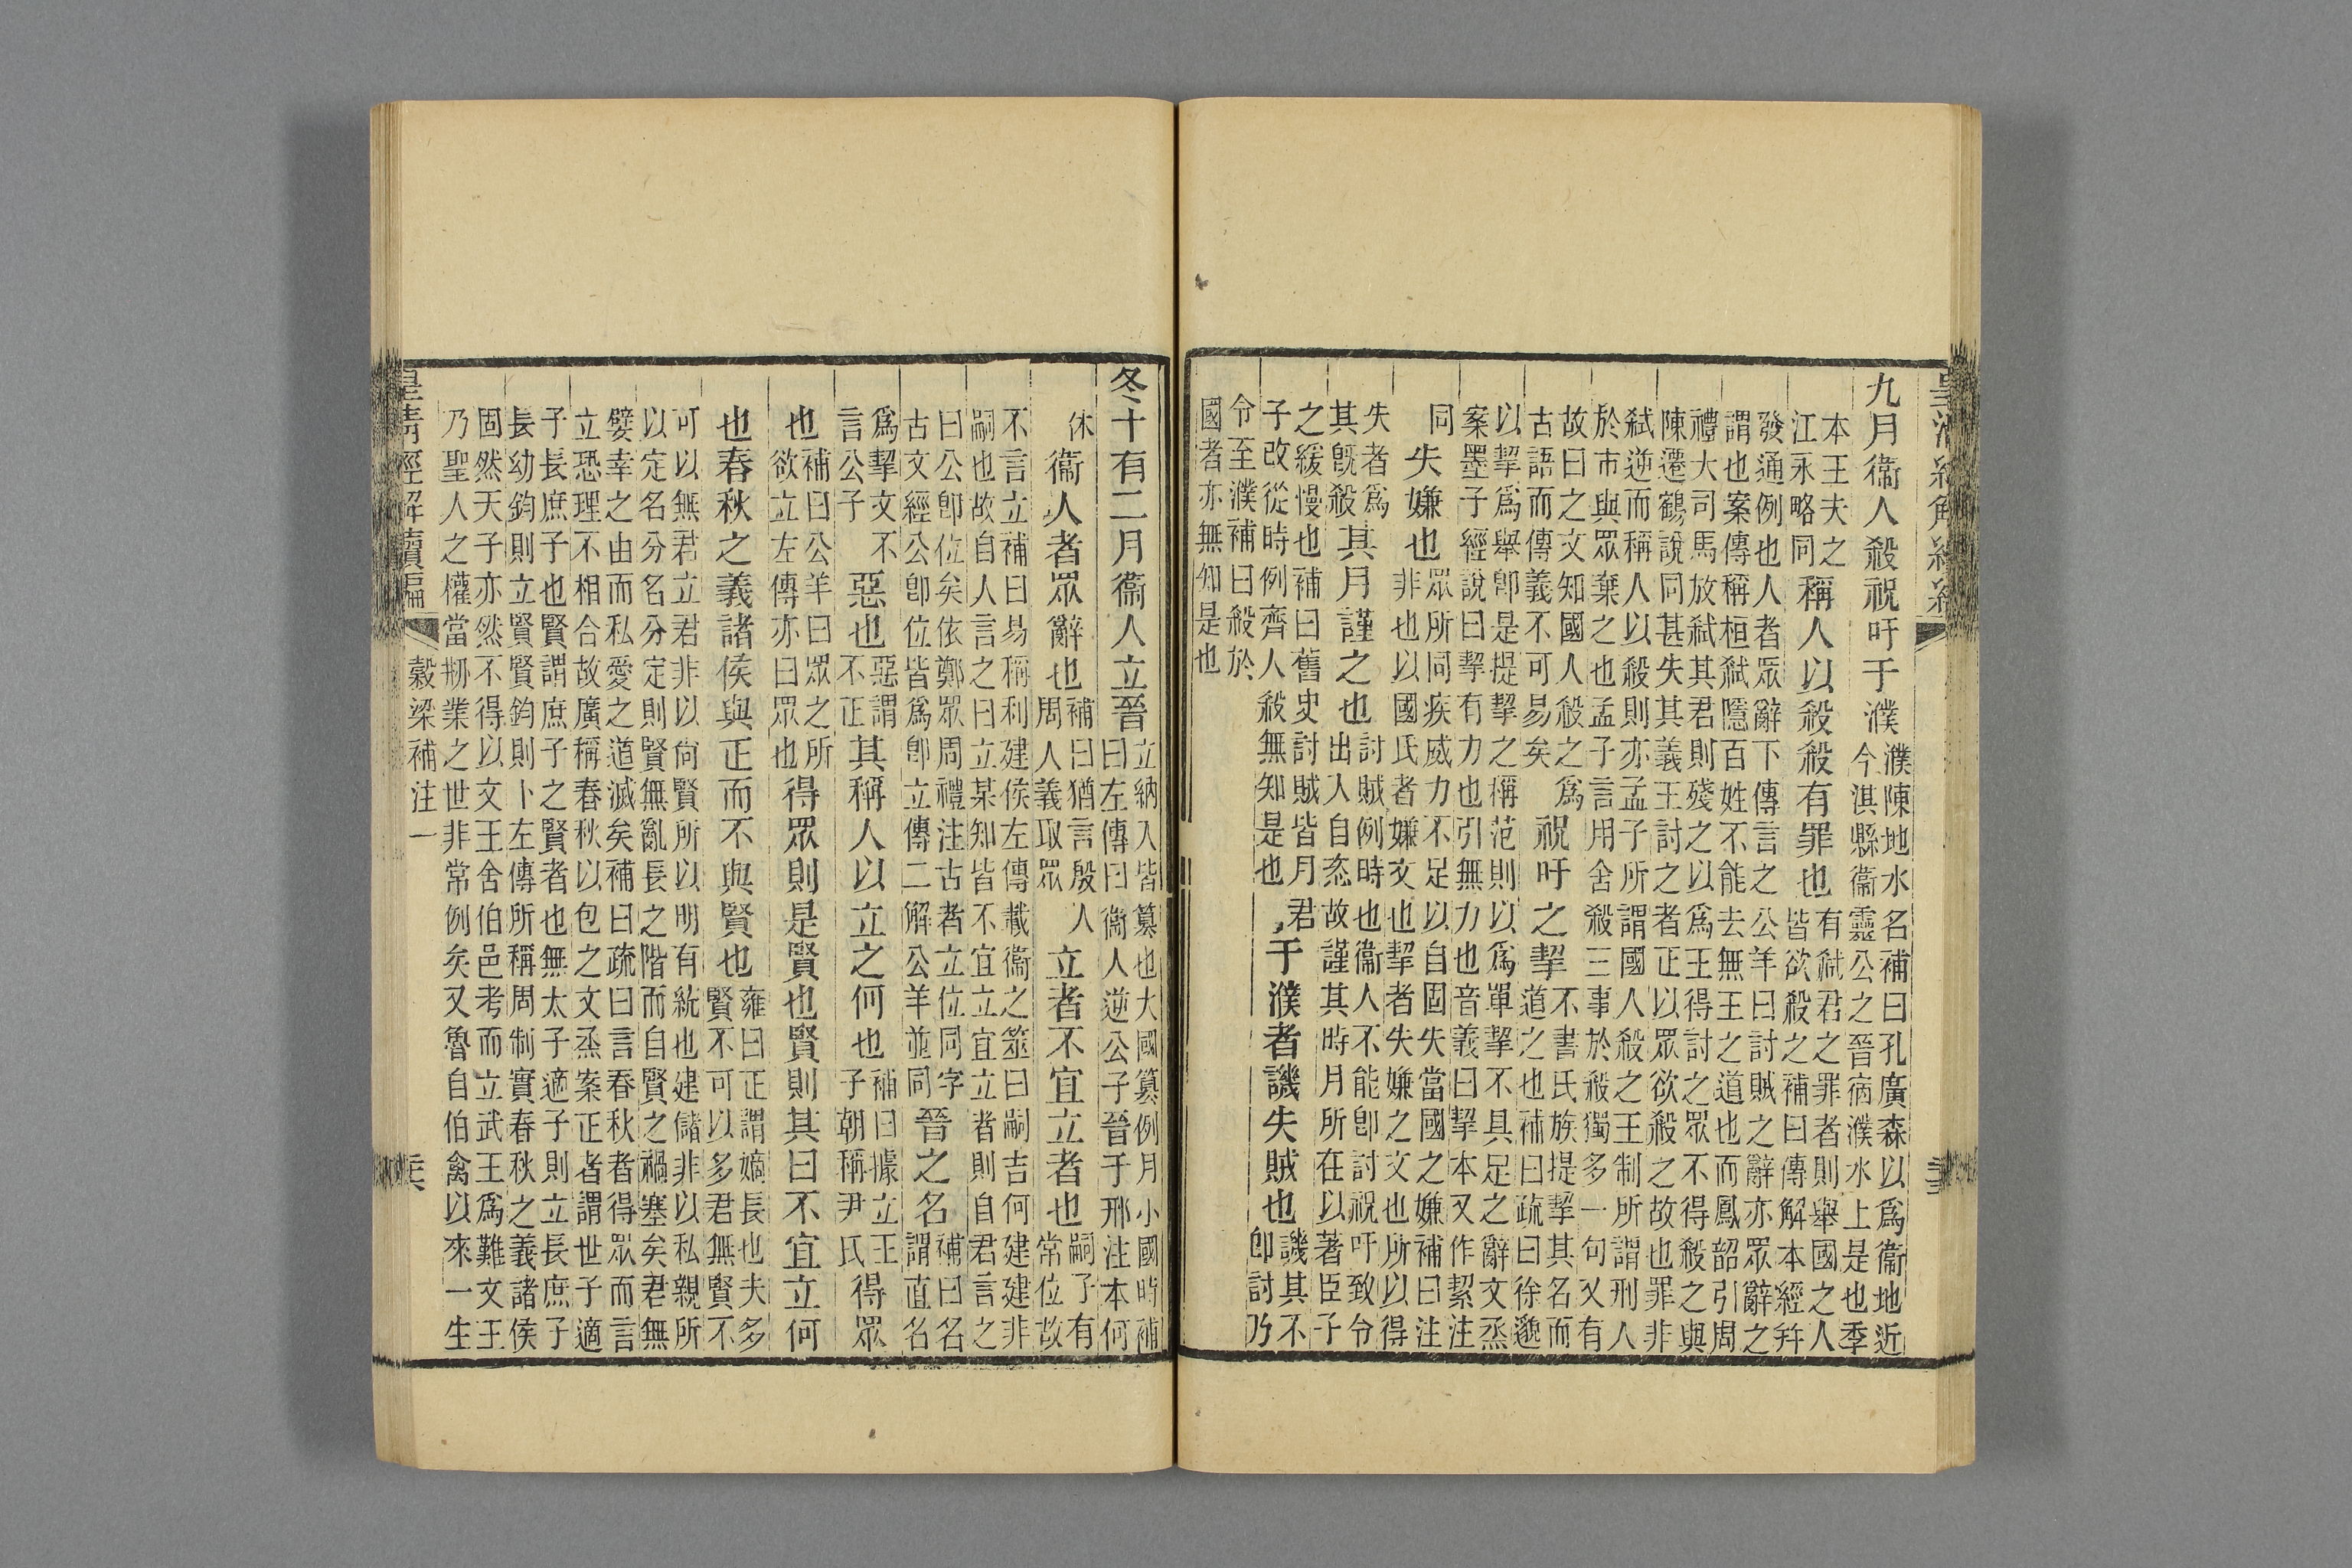 九月衞人殺祝吁于濮
濮陳地水名補曰孔廣森以爲衞地近
今淇縣衞靈公之晉宿濮水上是也季
本王夫之
江永略同
稱人以殺殺有罪也
有弒君之罪者則舉國之人
皆欲殺之補曰傳解本經幷
發通例也人者眾辭下傳言之公羊曰討賊之辭亦眾辭之
謂也案傳稱桓弒隱百姓不能去無王之道也而鳳韶引周
禮大司馬放弒其君則殘之以爲王得討之眾不得殺之與
陳遷鶴說同甚失其義王討之者正以眾欲殺之故也罪非
弒逆而稱人以殺則亦孟子所謂國人殺之王制所謂刑人
於市與眾棄之也孟子言用舍殺三事於殺獨多一句又有
故曰之文知國人殺之爲
古語而傳義不可易矣
祝吁之挈
不書氏族提挈其名而
道之也補曰疏曰徐邈
以挈爲舉卽是提挈之稱范則以爲單挈不具足之辭文烝
案墨子經說曰挈有力也引無力也音義曰挈本又作絜注
同
失嫌也
眾所同疾威力不足以自固失當國之嫌補曰注
非也以國氏者嫌文也挈者失嫌之文也所以得
失者爲
其旣殺
其月謹之也
討賊例時也衞人不能卽討祝吁致令
出入自恣故謹其時月所在以著臣子
之緩慢也補曰舊史討賊皆月君
子改從時例齊人殺無知是也
于濮者譏失賊也
譏其不
卽討乃
令至濮補曰殺於
國者亦無知是也
冬十有二月衞人立晉
立納入皆簒也大國簒例月小國時補
曰左傳曰衞人逆公子晉于邢注本何
休
衞人者眾辭也
補曰猶言殷人
周人義取眾
立者不宜立者也
嗣子有
常位故
不言立補曰易稱利建侯左傳載衞之筮曰嗣吉何建建非
嗣也故自人言之曰立某知皆不宜立宜立者則自君言之
曰公卽位矣依鄭眾周禮注古者立位同字
古文經公卽位皆爲卽立傳二解公羊並同
晉之名
補曰名
謂直名
爲挈文不
言公子
惡也
惡謂
不正
其稱人以立之何也
補曰據立王
子朝稱尹氏
得眾
也
補曰公羊曰眾之所
欲立左傳亦曰眾也
得眾則是賢也賢則其曰不宜立何
也春秋之義諸侯與正而不與賢也
雍曰正謂嫡長也夫多
賢不可以多君無賢不
可以無君立君非以尙賢所以明有統也建儲非以私親所
以定名分名分定則賢無亂長之階而自賢之禍塞矣君無
嬖幸之由而私愛之道滅矣補曰疏曰言春秋者得眾而言
立恐理不相合故廣稱春秋以包之文烝案正者謂世子適
子長庶子也賢謂庶子之賢者也無太子適子則立長庶子
長幼鈞則立賢賢鈞則卜左傳所稱周制實春秋之義諸侯
固然天子亦然不得以文王舍伯邑考而立武王爲難文王
乃聖人之權當剏業之世非常例矣又魯自伯禽以來一生
皇清經解續編
穀梁補注一